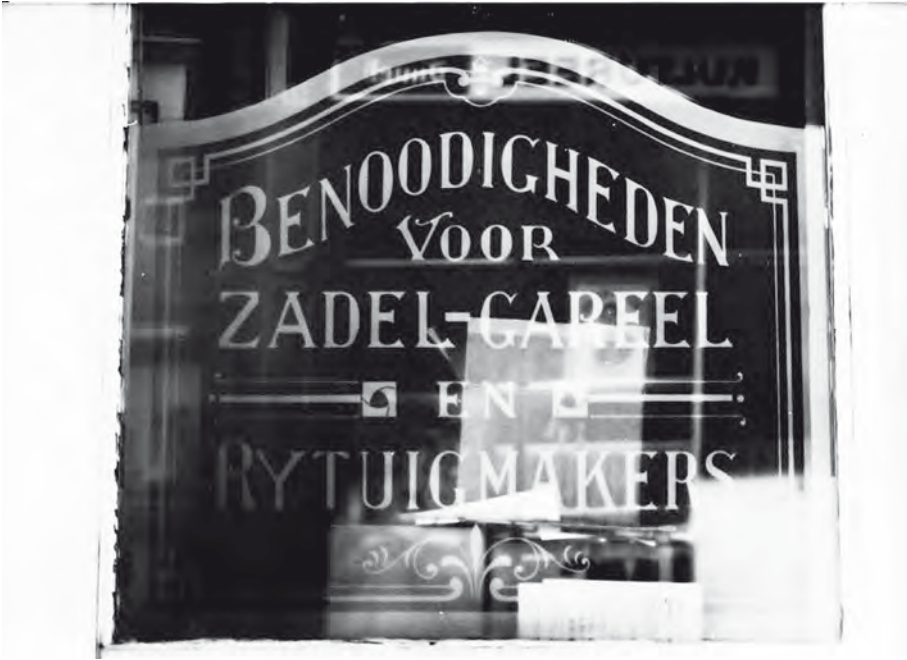 BENOODIGHEDEN
VOOR
ZADEL-GAREEL
EN
RYTUIGMAKERS